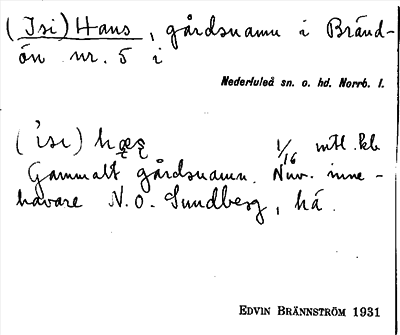 (Isi) Hans, gårdsnamn i Bränd-
ön nr. 5 i
Nederluleå sn. o. hd. Norrb. l.
('isi) hęs
1/16 mtl. kb.
Gammalt gårdsnamn. Nuv. inne-
havare N. O. Sundberg, hä.
EDVIN BRÄNNSTRÖM 1931